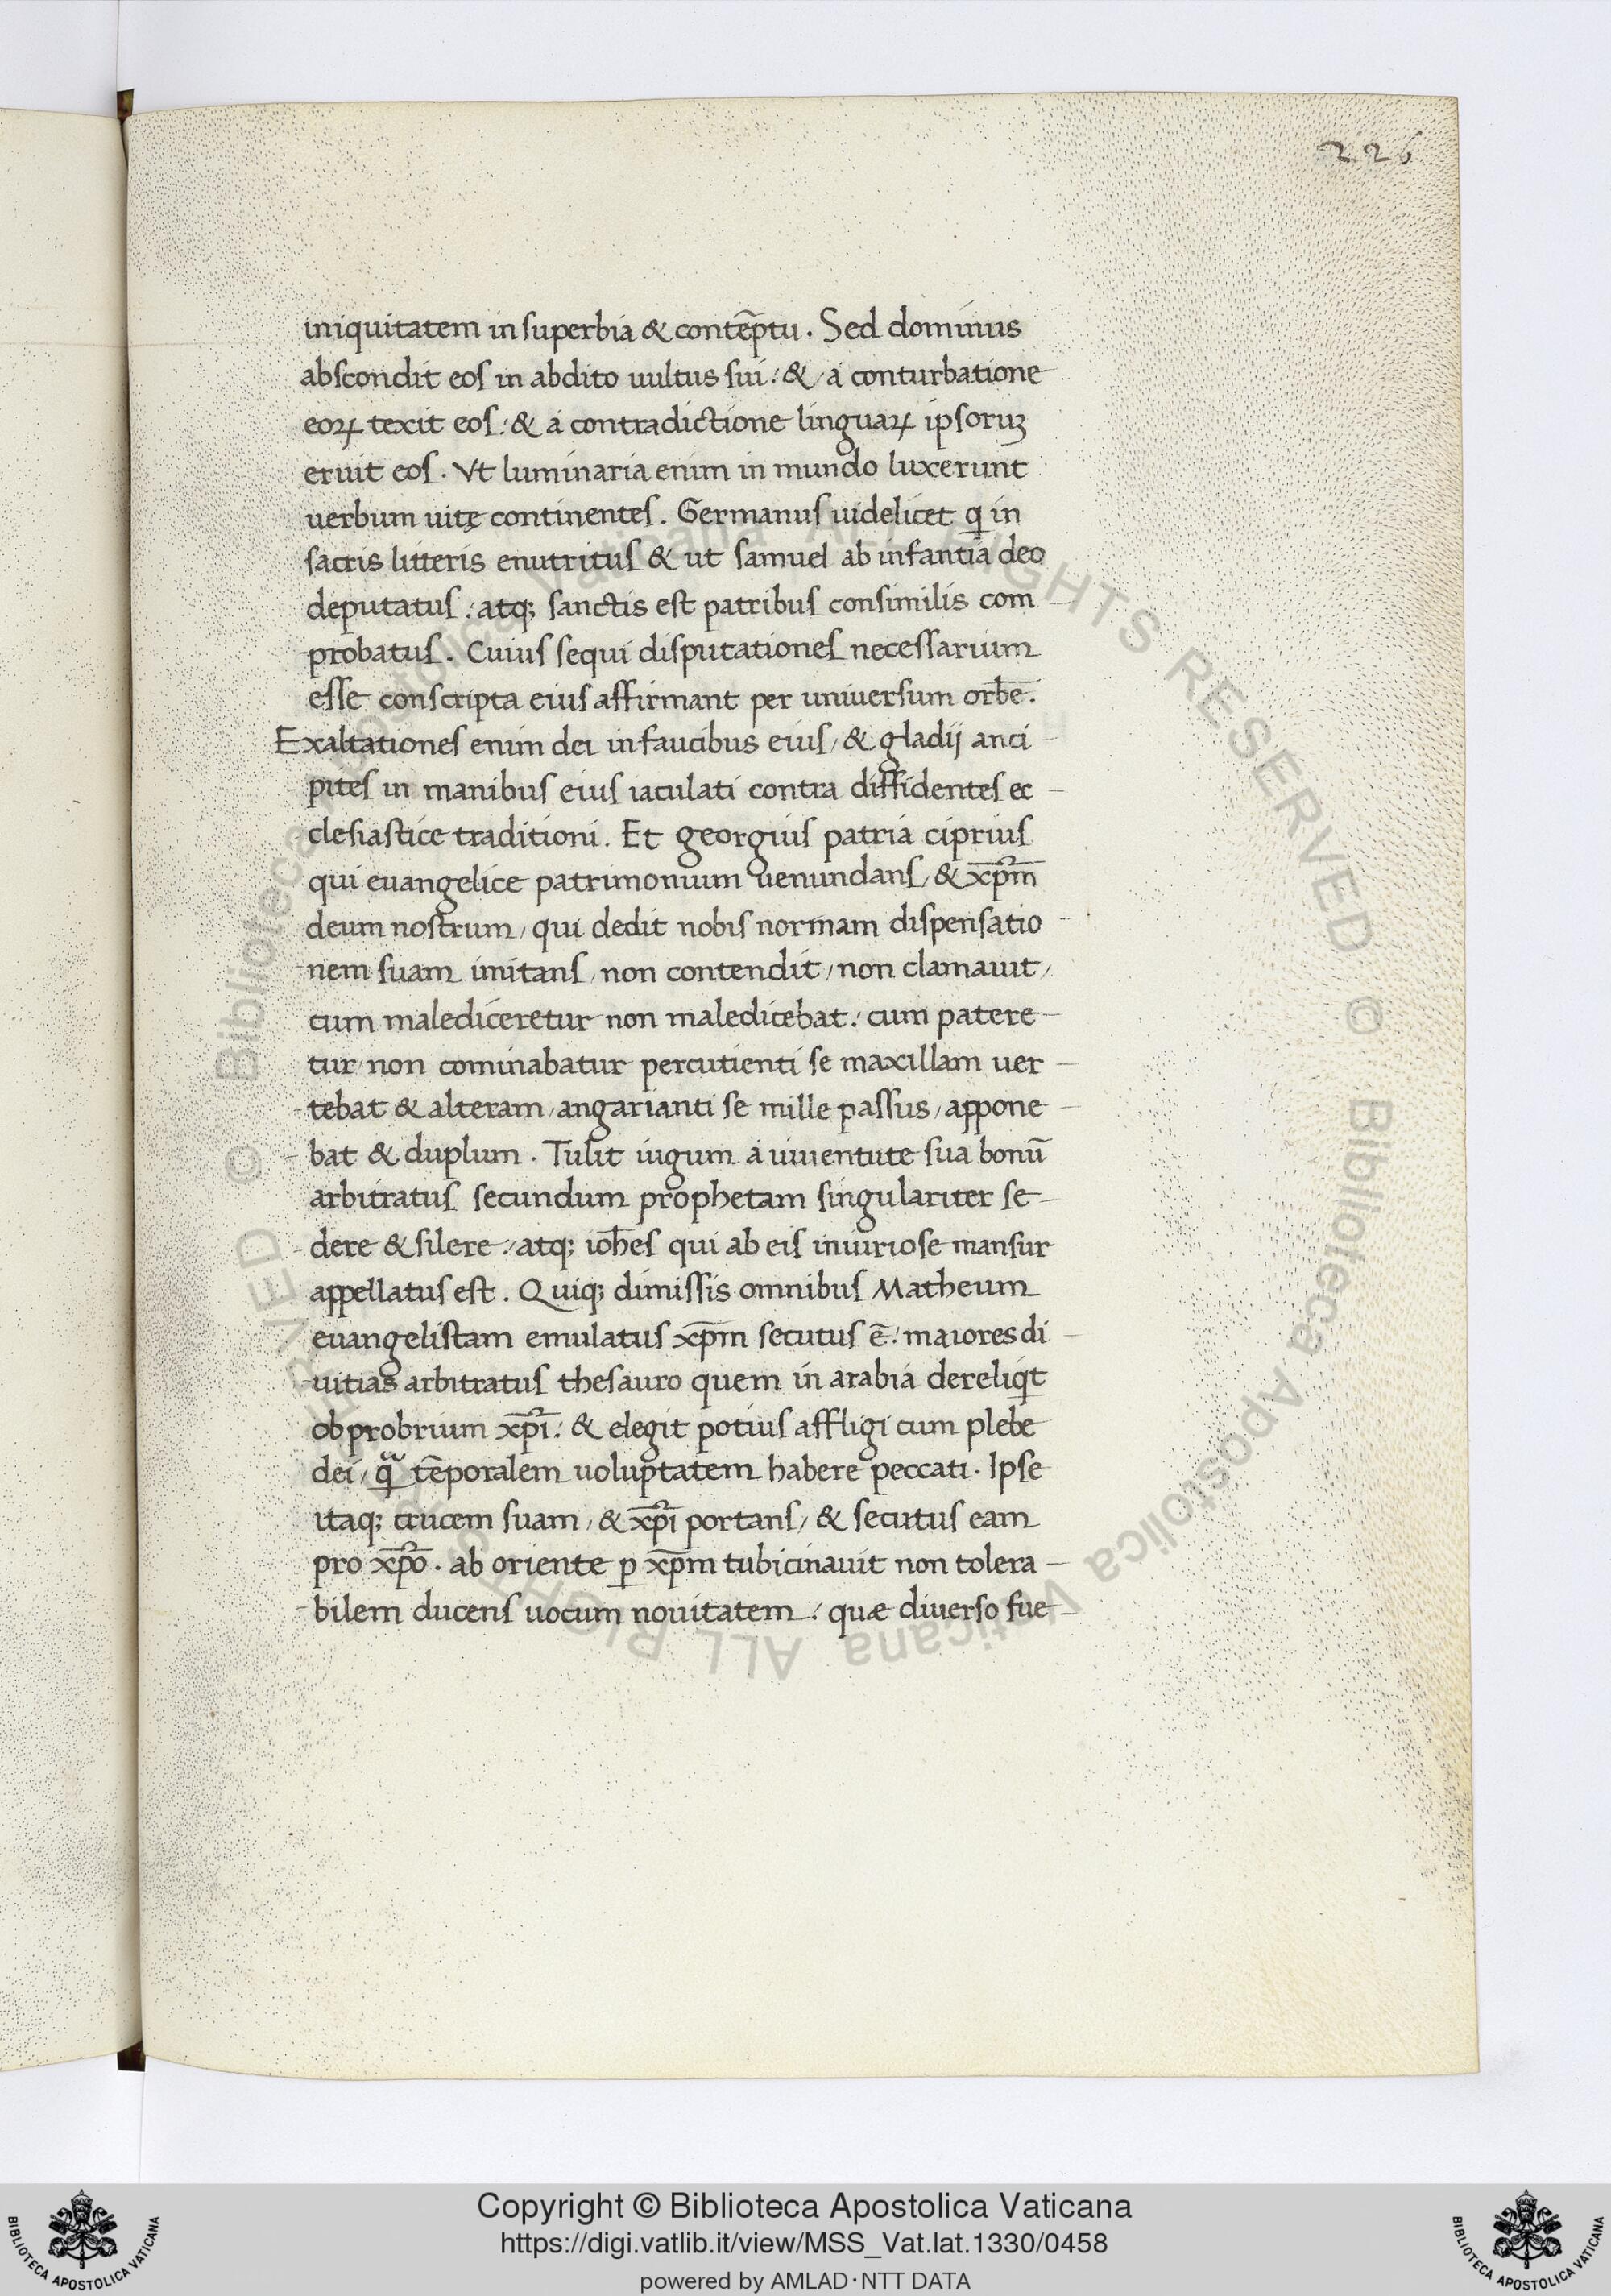 226
iniquitatem in superbia & contēptu. Sed dominus
abscondit eos in abdito uultus sui: & a conturbatione
eoꝝ texit eos: & a contradictione linguaꝝ ipsoruꝫ
eruit eos. Vt luminaria enim in mundo luxerunt
uerbum uitę continentes. Germanus uidelicet q in
sacris litteris enutritus & ut samuel ab infantia deo
deputatus: atq; sanctis est patribus consimilis com-
probatus. Cuius sequi disputationes necessarium
esse conscripta eius affirmant per uniuersum orbē.
Exaltationes enim dei in faucibus eius, & gladij anci-
pites in manibus eius iaculati contra diffidentes ec-
clesiastice traditioni. Et georgius patria ciprius
qui euangelice patrimonium uenundans, & xp̄m
deum nostrum, qui dedit nobis normam dispensatio-
nem suam imitans, non contendit, non clamauit,
cum malediceretur non maledicebat: cum patere-
tur non cominabatur percutienti se maxillam uer-
tebat & alteram, angarianti se mille passus, appone-
bat & duplum. Tulit iugum a iuuentute sua bonū
arbitratus secundum prophetam singulariter se-
dere & silere: atq; ioh̄es qui ab eis iniuriose mansur
appellatus est. Quiq; dimissis omnibus Matheum
euangelistam emulatus xp̄m secutus ē: maiores di-
uitias arbitratus thesauro quem in arabia dereliqt
obprobrium xp̄i: & elegit potius affligi cum plebe
dei, qᷓ tēporalem uoluptatem habere peccati. Ipse
itaq; crucem suam, & xp̄i portans, & secutus eam
pro xp̄o. ab oriente ꝑ xp̄m tubicinauit non tolera-
bilem ducens uocum nouitatem: quæ diuerso fue-
© Biblioteca Apostolica Vaticana ALL RIGHTS RESERVED © Biblioteca Apostolica Vaticana ALL RIGHTS RESERVED
Copyright © Biblioteca Apostolica Vaticana
https://digi.vatlib.it/view/MSS_Vat.lat.1330/0458
powered by AMLAD·NTT DATA
BIBLIOTECA APOSTOLICA VATICANA
BIBLIOTECA APOSTOLICA VATICANA